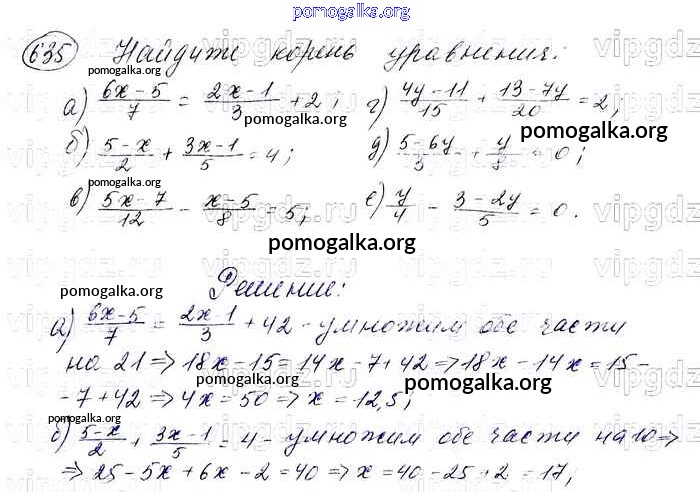 pomogalka.org
635 Найдите корень уравнения:
а) (6x-5)/7 = (2x-1)/3 + 2; г) (4y-11)/15 + (13-7y)/20 = 2;
б) (5-x)/2 + (3x-1)/5 = 4; д) (5-6y)/3 + y/8 = 0;
в) (5x-7)/12 - (x-5)/8 = 5; е) y/4 - (3-2y)/5 = 0.
Решение:
а) (6x-5)/7 = (2x-1)/3 + 42 - умножим обе части
на 21 => 18x-15 = 14x-7+42 => 18x-14x = 15-
-7+42 => 4x = 50 => x = 12,5;
б) (5-x)/2 + (3x-1)/5 = 4 - умножим обе части на 10 =>
=> 25-5x+6x-2 = 40 => x = 40-25+2 = 17;
pomogalka.org
pomogalka.org
pomogalka.org
pomogalka.org
pomogalka.org
pomogalka.org
pomogalka.org
pomogalka.org
pomogalka.org
vipgdz.ru